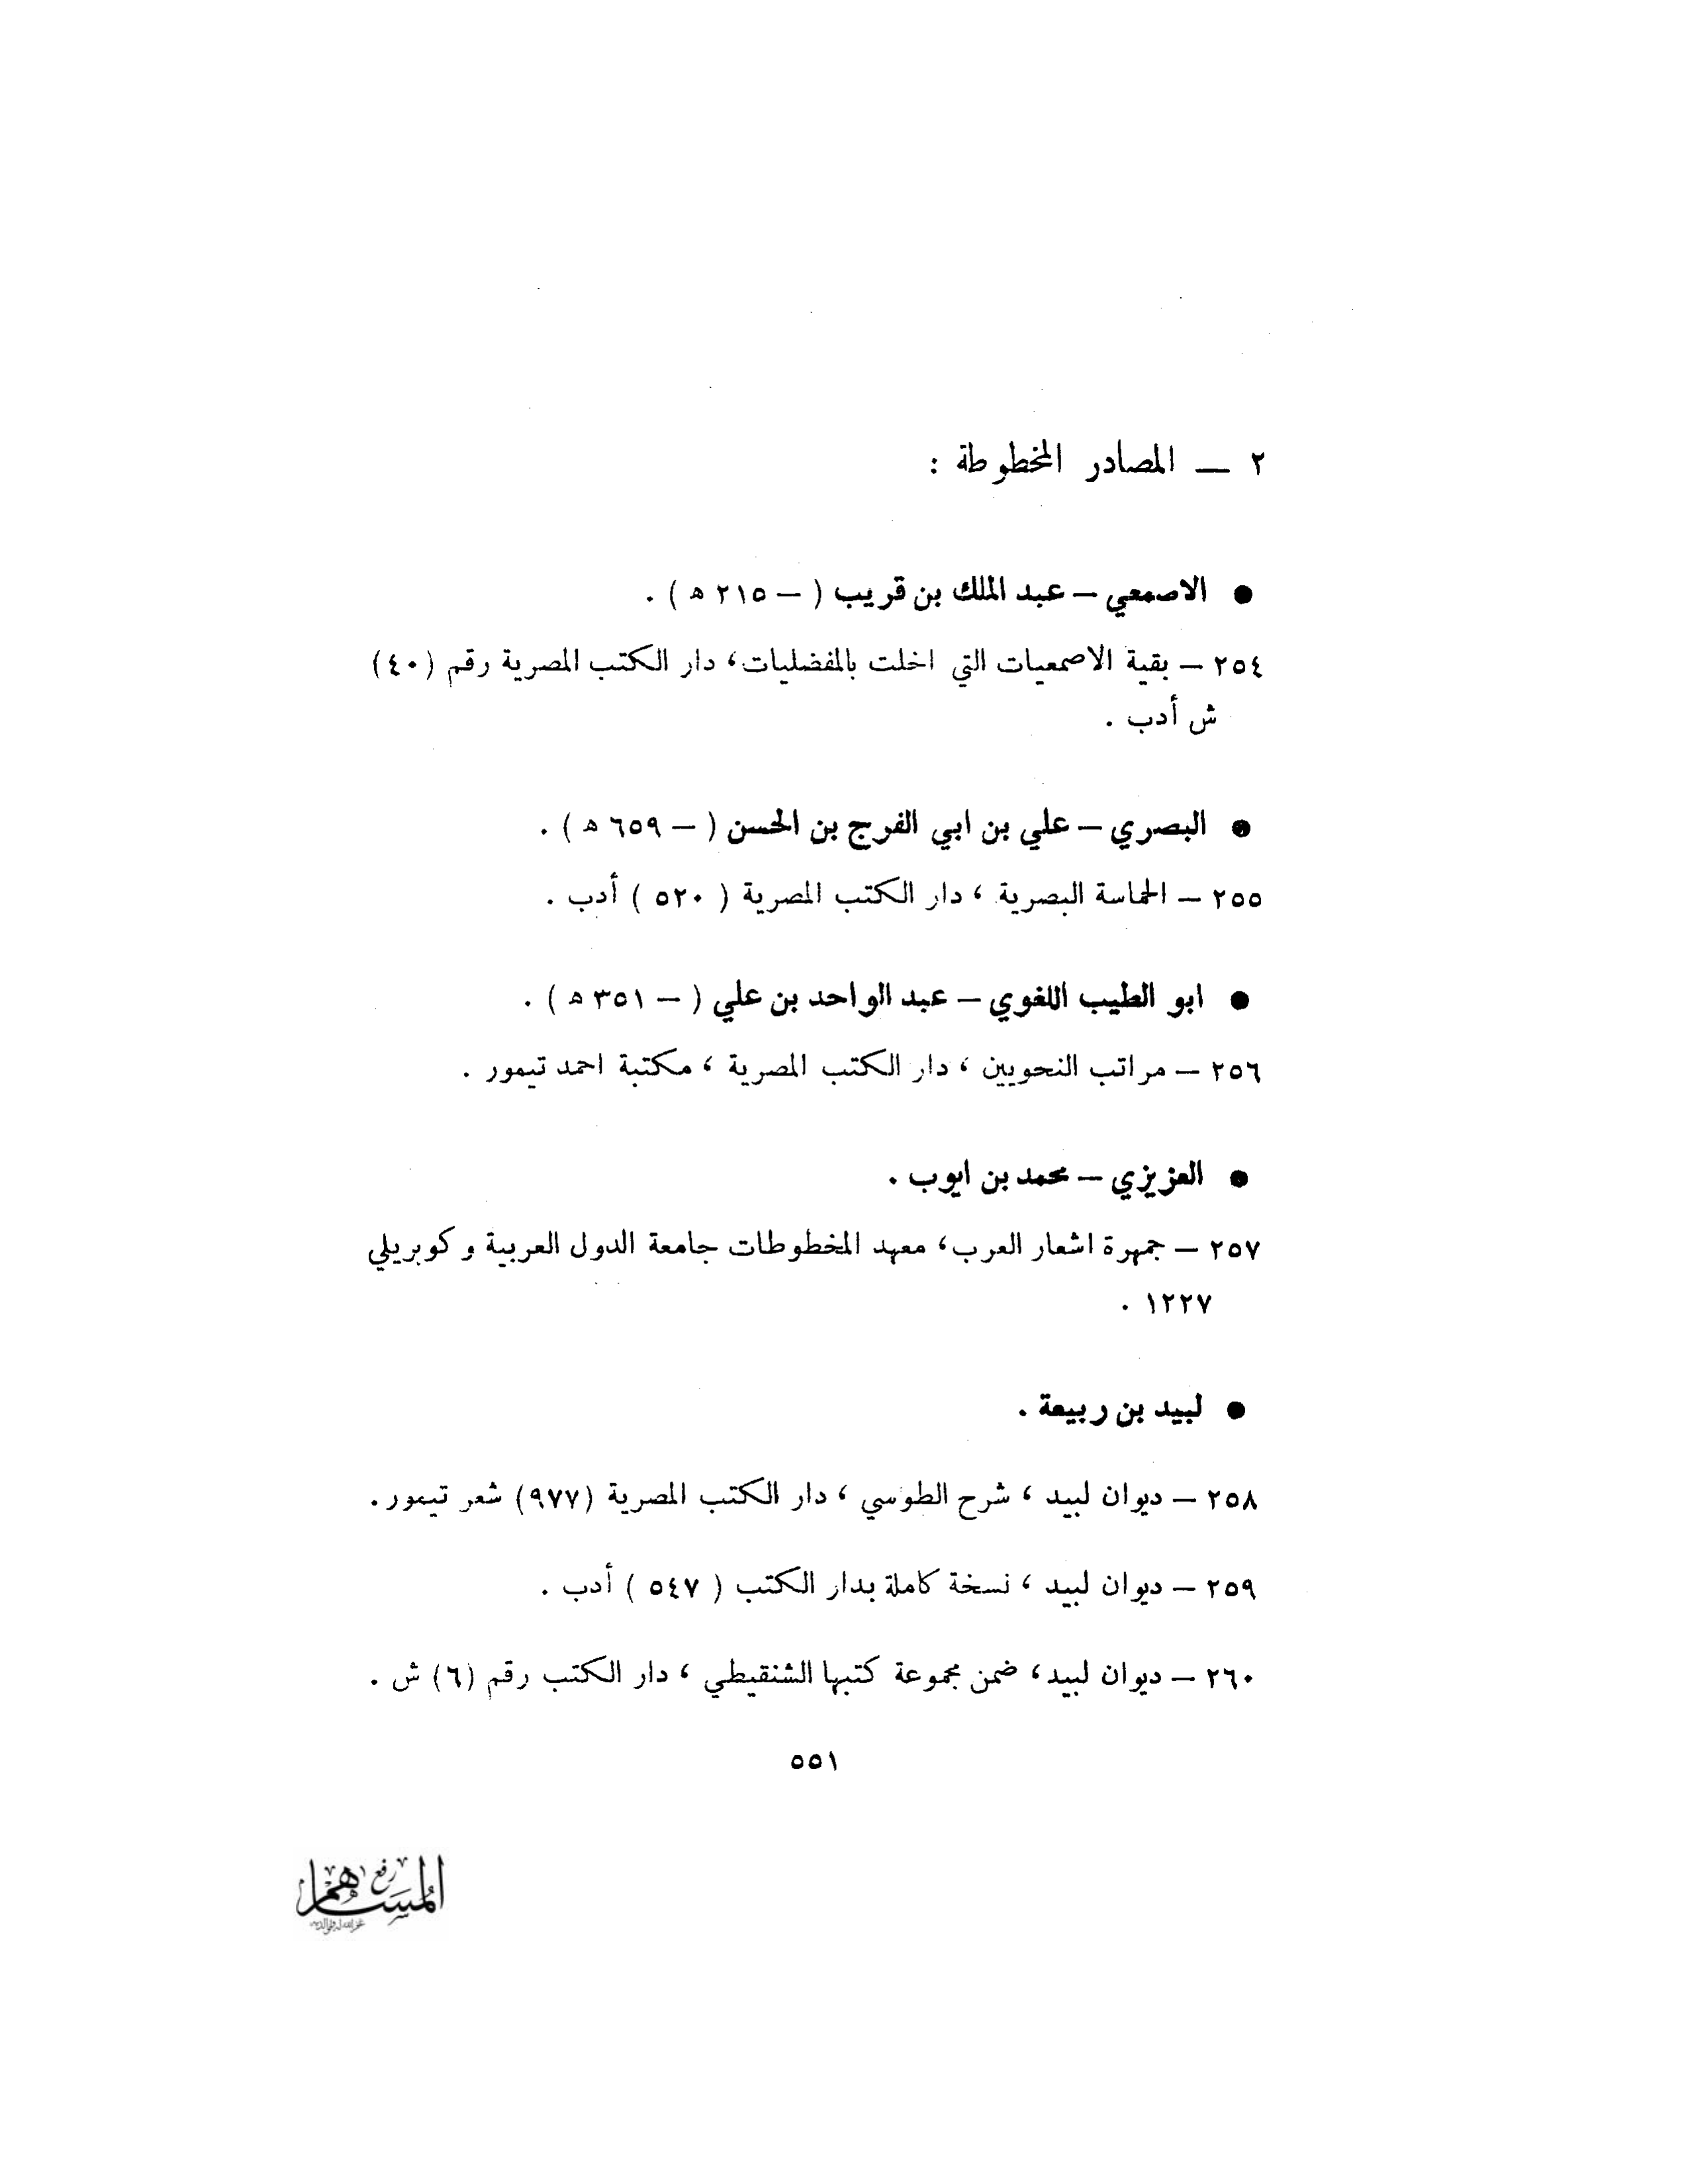 ٢ — المصادر المخطوطة :
● الاصمعي – عبد الملك بن قريب ( – ٢١٥ ه ) .
٢٥٤ – بقية الاصمعيات التي اخلت بالمفضليات، دار الكتب المصرية رقم (٤٠)
ش أدب .
● البصري – علي بن ابي الفرج بن الحسن ( – ٦٥٩ ه ) .
٢٥٥ – الحماسة البصرية ، دار الكتب المصرية ( ٥٢٠ ) أدب .
● ابو الطيب اللغوي – عبد الواحد بن علي ( – ٣٥١ ه ) .
٢٥٦ – مراتب النحويين ، دار الكتب المصرية ، مكتبة احمد تيمور .
● العزيزي – محمد بن ايوب .
٢٥٧ – جمهرة اشعار العرب، معهد المخطوطات جامعة الدول العربية و كوبريلي
١٢٢٧ .
● لبيد بن ربيعة .
٢٥٨ – ديوان لبيد ، شرح الطوسي ، دار الكتب المصرية (٩٧٧) شعر تيمور .
٢٥٩ – ديوان لبيد ، نسخة كاملة بدار الكتب ( ٥٤٧ ) أدب .
٢٦٠ – ديوان لبيد، ضمن مجموعة كتبها الشنقيطي ، دار الكتب رقم (٦) ش .
٥٥١
رفع
المسا هم